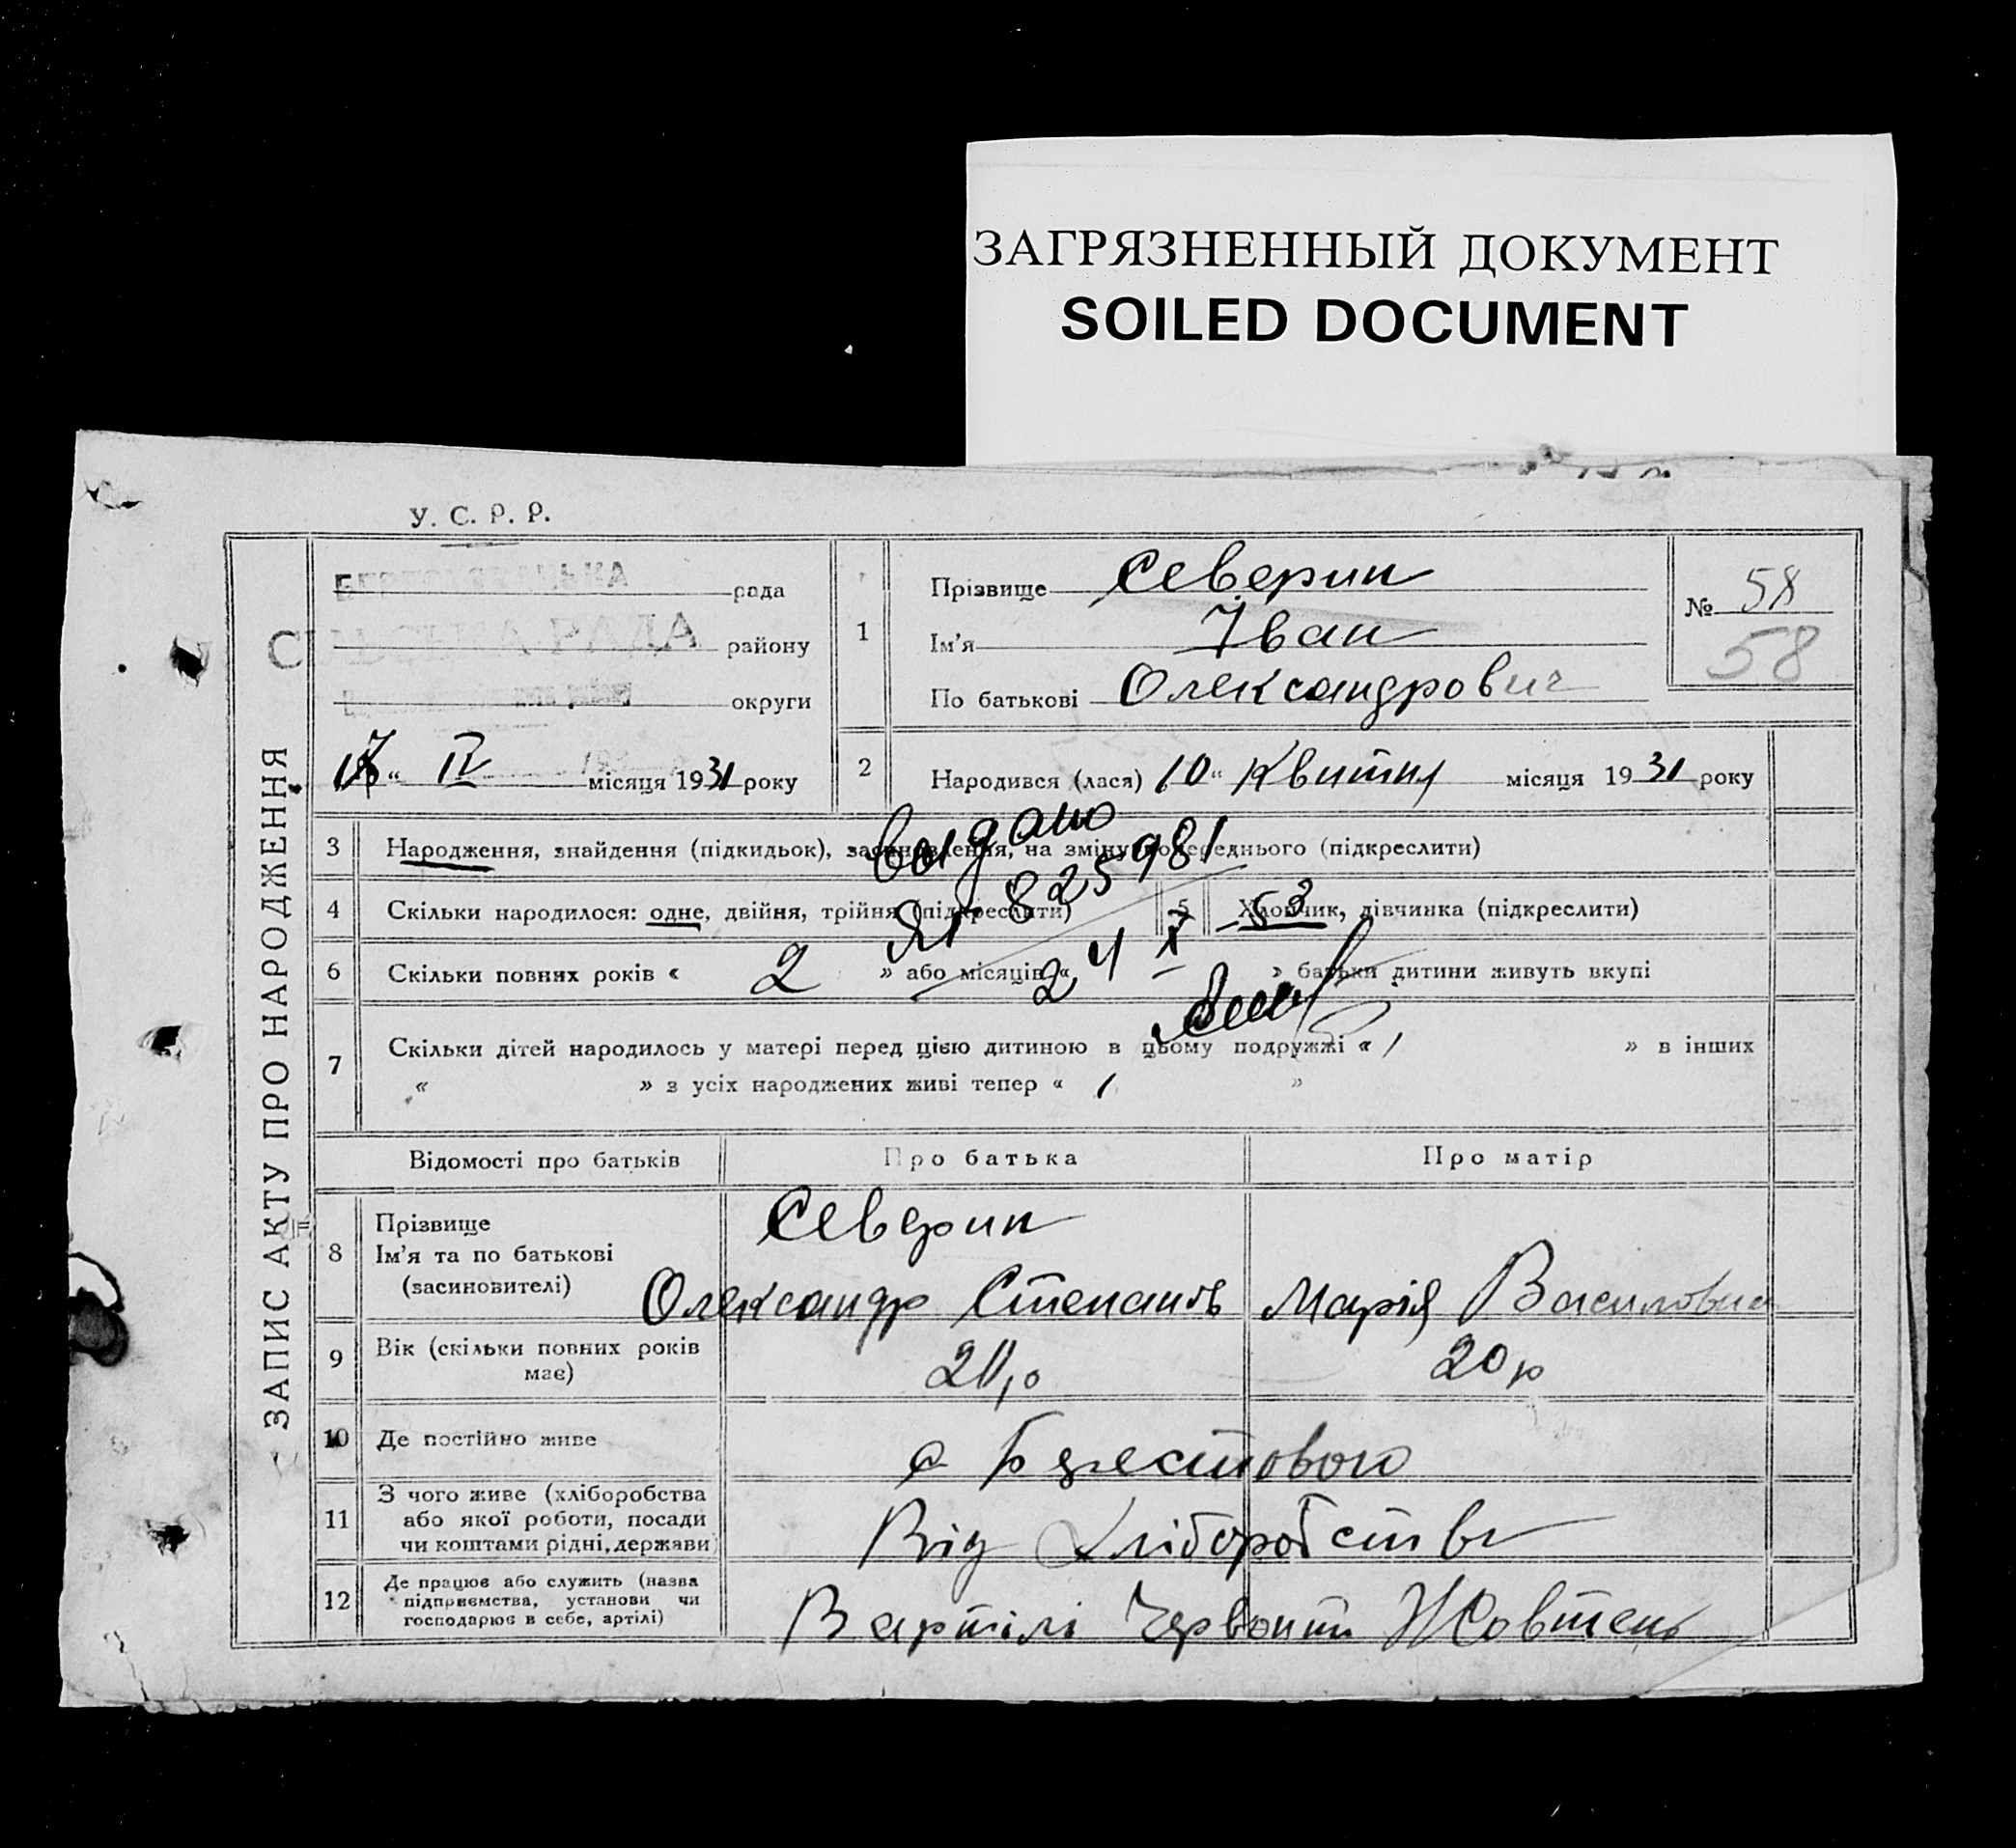 ЗАГРЯЗНЕННЫЙ ДОКУМЕНТ
SOILED DOCUMENT
У. С. Р. Р.
ЗАПИС АКТУ ПРО НАРОДЖЕННЯ
рада
району
округи
17 « IV місяця 1931 року
1
Прізвище Северин
Ім'я Іван
По батькові Олександрович
№ 58
58
2 Народився (лася) 10 « Квітня місяця 1931 року
3 Народження, знайдення (підкидьок), засиновлення, на зміну попереднього (підкреслити)
видано
4 Скільки народилося: одне, двійня, трійня (підкреслити)
5 Хлопчик, дівчинка (підкреслити)
825981
24 X 53
6 Скільки повних років « 2 » або місяців « » батьки дитини живуть вкупі
7 Скільки дітей народилось у матері перед цією дитиною в цьому подружжі « 1 » в інших
« » з усіх народжених живі тепер « 1 »
Відомості про батьків Про батька Про матір
8 Прізвище
Ім'я та по батькові
(засиновителі)
Северин
Олександр Степанов Марія Василовна
9 Вік (скільки повних років
має)
20 р
10 Де постійно живе с Берестового
11 З чого живе (хліборобства
або якої роботи, посади
чи коштами рідні, держави)
Від Хліборобства
12 Де працює або служить (назва
підприємства, установи чи
господарює в себе, артілі)
В артілі Червоний Жовтень